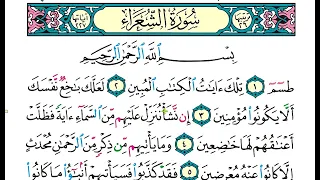 سُورَةُ الشُّعَرَاءِ
بِسْمِ اللَّهِ الرَّحْمَٰنِ الرَّحِيمِ
طسٓمٓ ١ تِلْكَ ءَايَٰتُ الْكِتَٰبِ الْمُبِينِ ٢ لَعَلَّكَ بَٰخِعٌ نَّفْسَكَ
أَلَّا يَكُونُوا مُؤْمِنِينَ ٣ إِن نَّشَأْ نُنَزِّلْ عَلَيْهِم مِّنَ السَّمَآءِ ءَايَةً فَظَلَّتْ
أَعْنَٰقُهُمْ لَهَا خَٰضِعِينَ ٤ وَمَا يَأْتِيهِم مِّن ذِكْرٍ مِّنَ الرَّحْمَٰنِ مُحْدَثٍ
إِلَّا كَانُوا عَنْهُ مُعْرِضِينَ ٥ فَقَدْ كَذَّبُوا فَسَيَأْتِيهِمْ أَنۢبَٰٓؤُا مَا كَانُوا